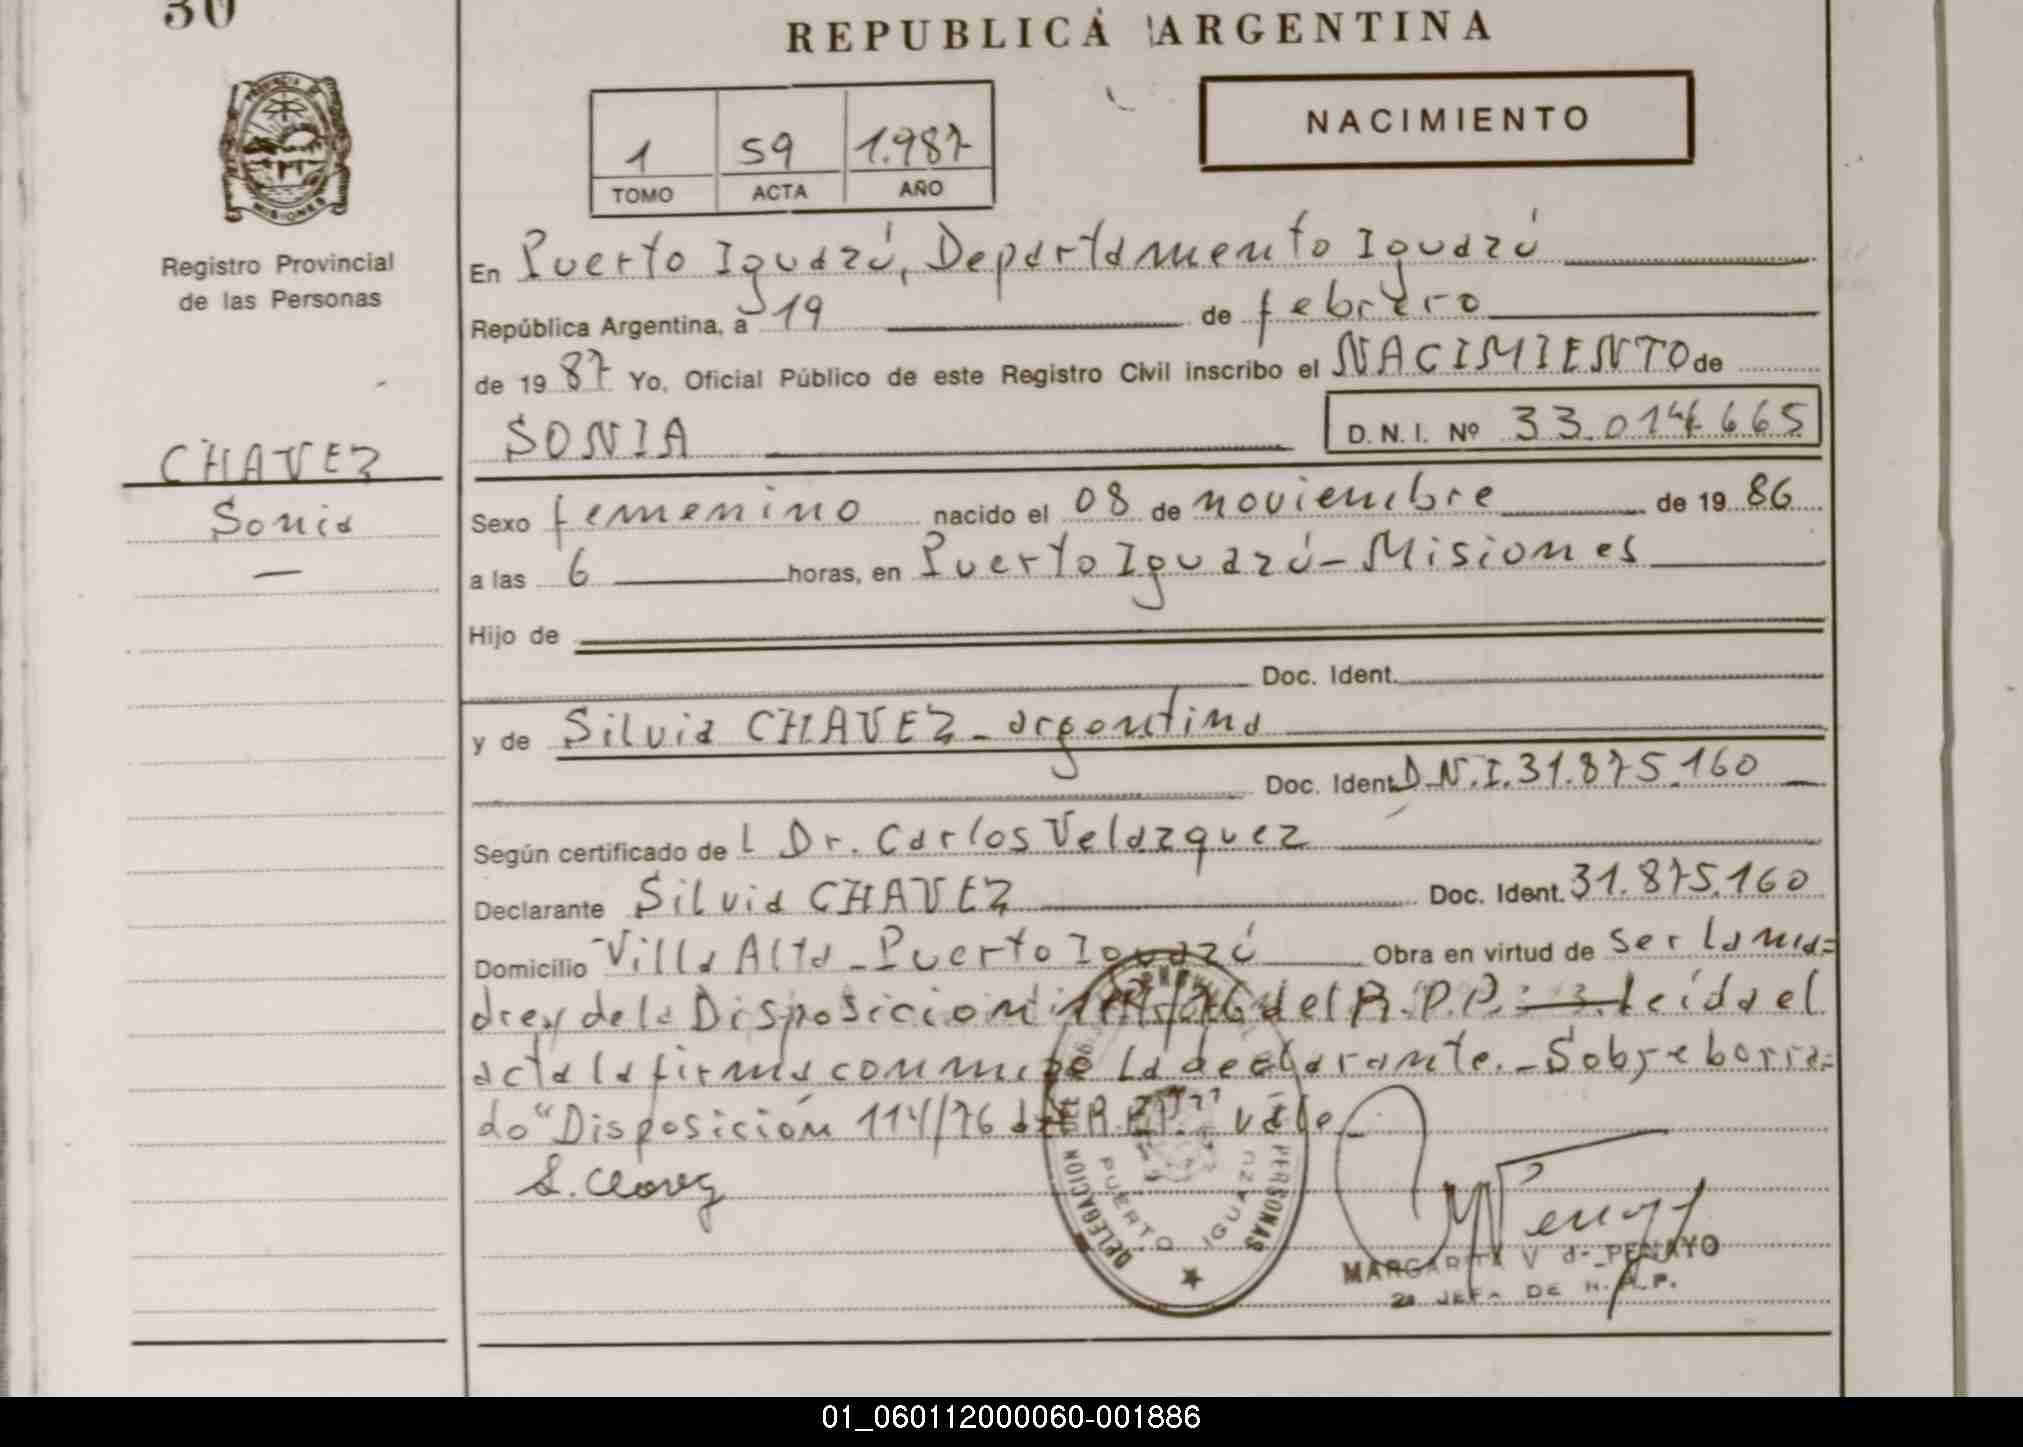 30
REPUBLICA ARGENTINA
PROVINCIA DE
MISIONES
Registro Provincial
de las Personas
1 59 1.987
TOMO ACTA AÑO
NACIMIENTO
En Puerto Iguazú, Departamento Iguazú
República Argentina, a 19 de febrero
de 1987 Yo, Oficial Público de este Registro Civil inscribo el NACIMIENTO de
SONIA D. N. I. Nº 33.014.665
CHAVEZ
Sonia
Sexo femenino nacido el 08 de noviembre de 1986
a las 6 horas, en Puerto Iguazú - Misiones
Hijo de
Doc. Ident.
y de Silvia CHAVEZ - argentina
Doc. Ident. D.N.I. 31.875.160
Según certificado del Dr. Carlos Velazquez
Declarante Silvia CHAVEZ Doc. Ident. 31.875.160
Domicilio Villa Alta - Puerto Iguazú Obra en virtud de ser la ma=
dre y de la Disposicion 114/76 del R.P.P. Leída el
acta la firma conmigo la declarante. - Sobre borra=
do "Disposición 114/76 del R.P.P." vale
S. Chavez
DELEGACION PERSONAS
PUERTO IGUAZU
MARGARITA V de PENAYO
2a JEFA DE
01_060112000060-001886